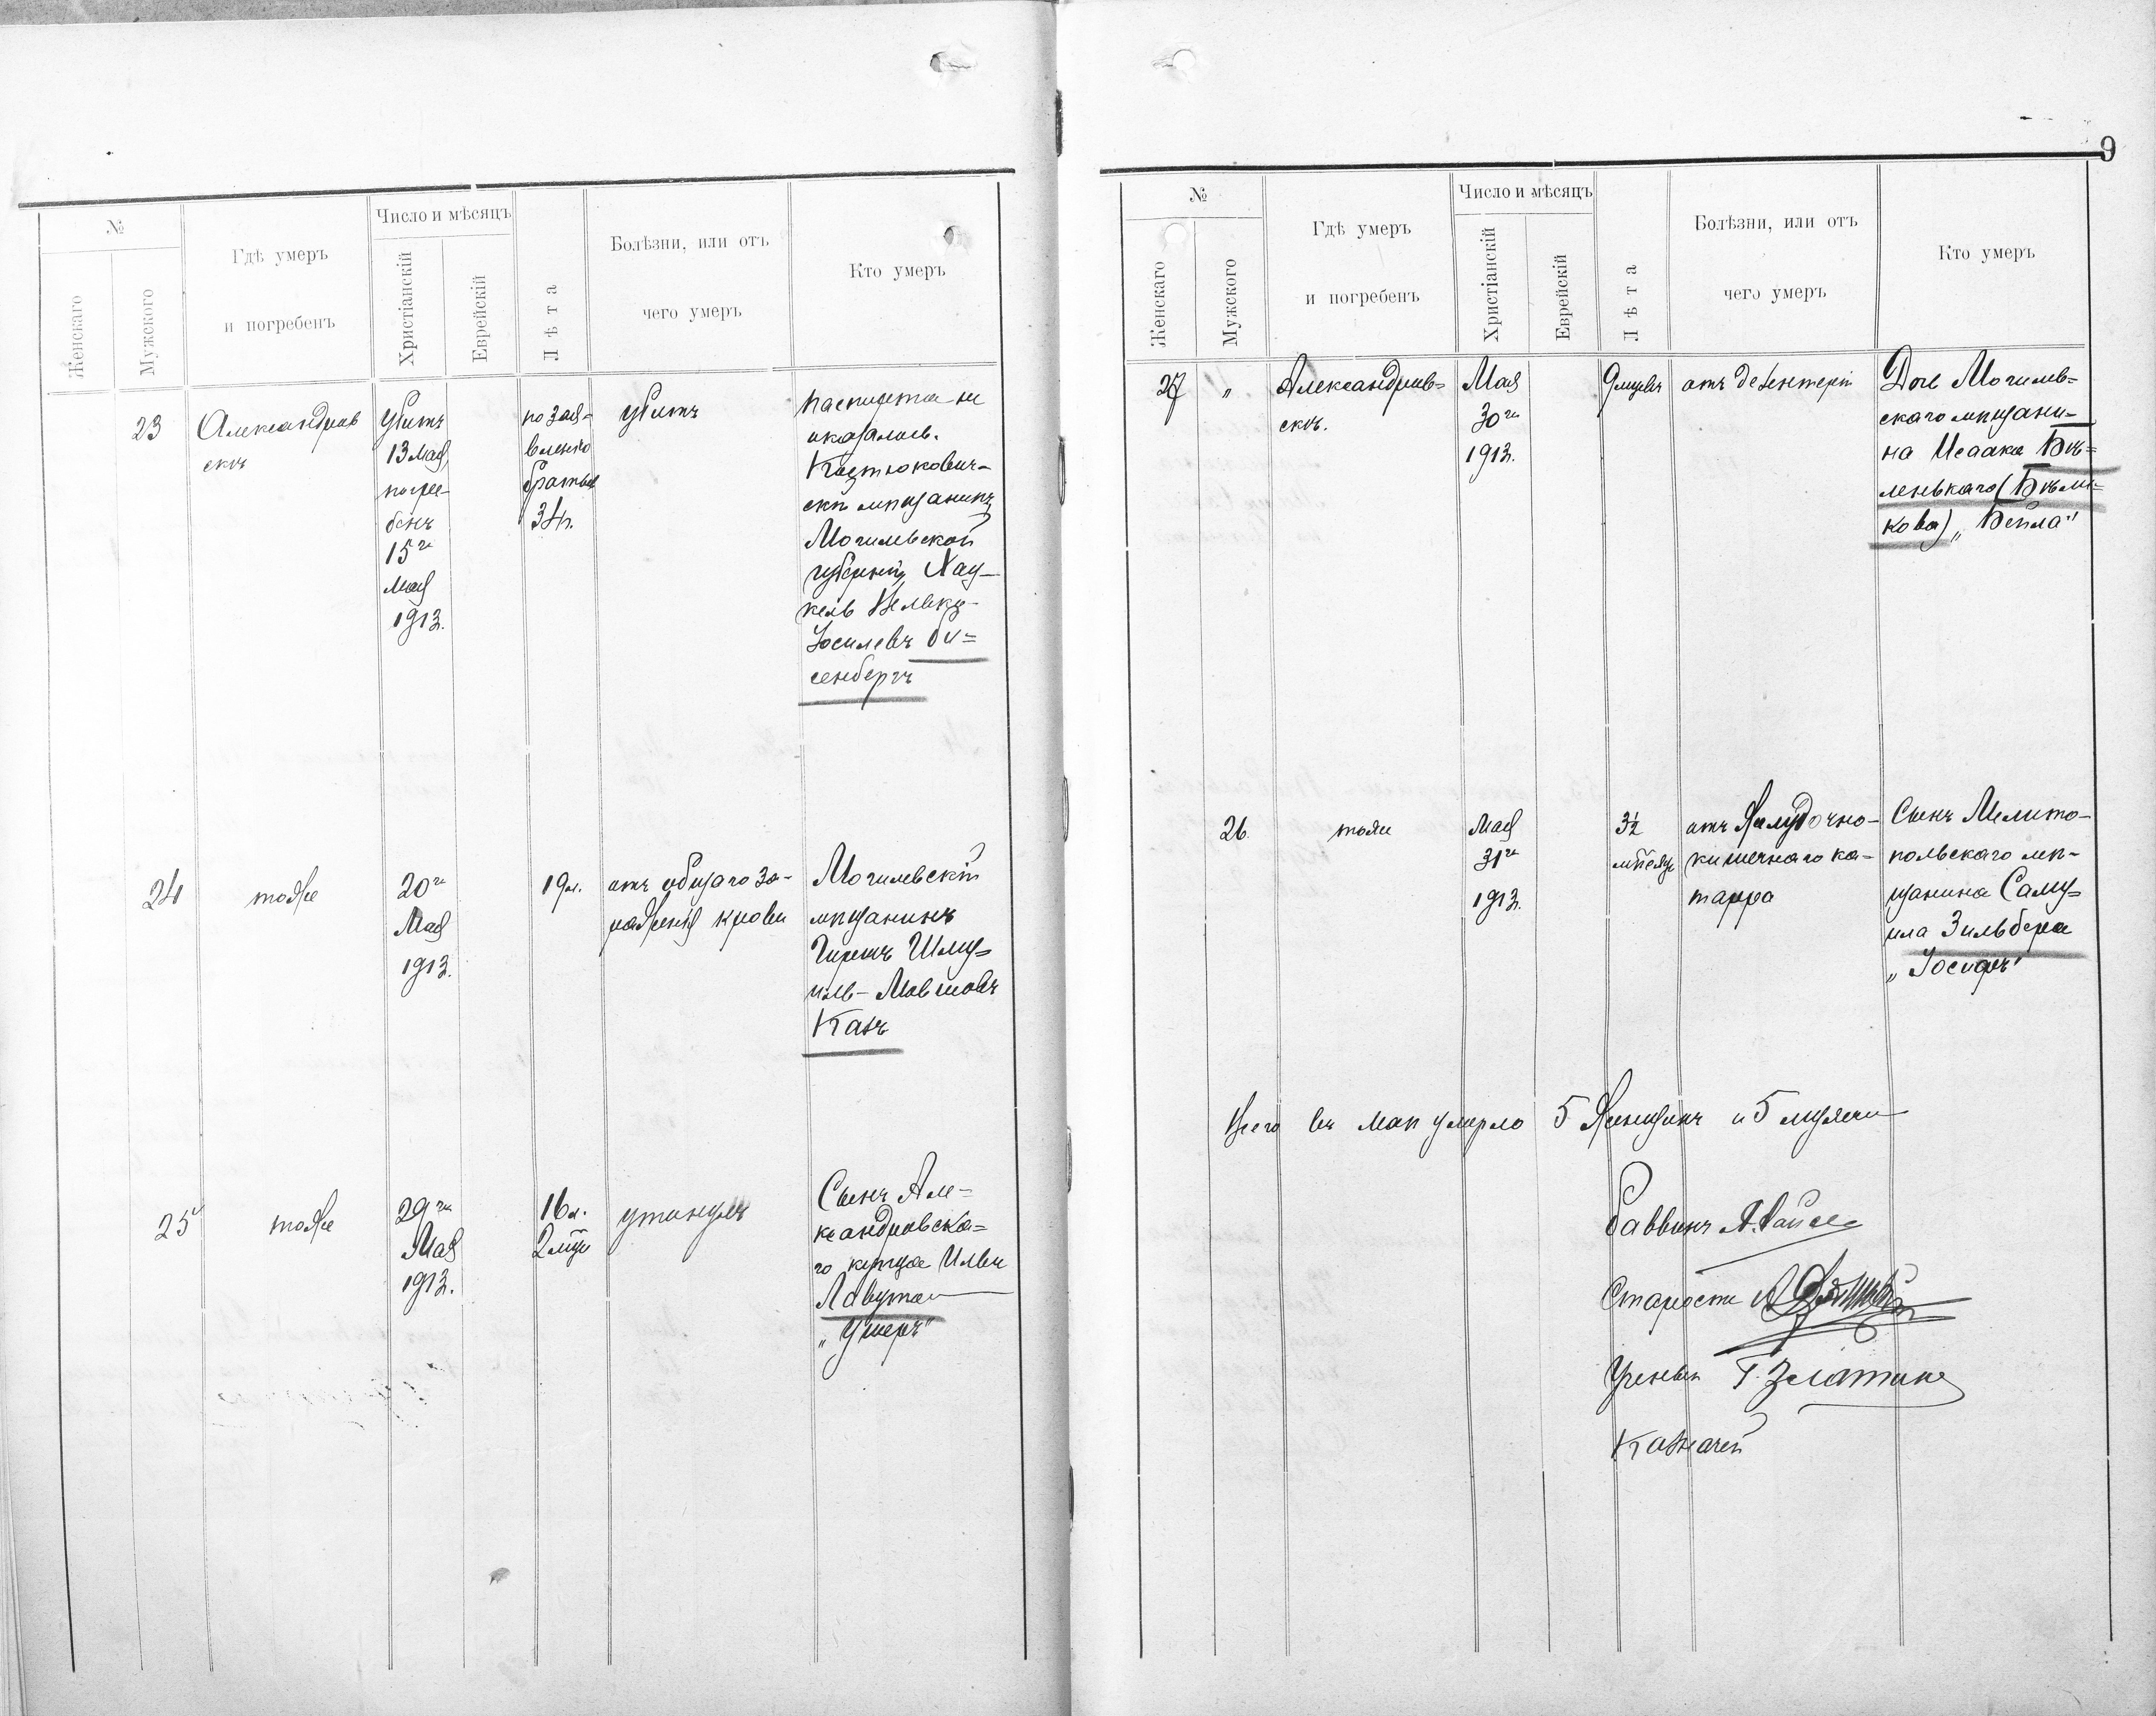 9
№
Женскаго
Мужского
Гдѣ умеръ
и погребенъ
Число и мѣсяцъ
Христіанскій
Еврейскій
Лѣта
Болѣзни, или отъ
чего умеръ
Кто умеръ
23
Александров
скъ
Убитъ
13 Мая,
погре-
бенъ
15го
Мая
1913.
по зая-
вленію
братьев
34 г.
убитъ
Паспорта не
оказалось.
Костюкович-
скій мѣщанинъ
Могилевской
губерніи, Хац-
кель Велько-
Іосилевъ
сенбергъ
24
тоже
20го
Мая
1913.
19 л.
отъ общаго за-
раженія крови
Могилевскій
мѣщанинъ
Гиршъ Шму-
иль-Мовшовъ
Канъ
25
тоже
29го
Мая
1913.
16 л.
2 мѣс
утонулъ
Сынъ Але-
ксандровска-
го купца Ильи
Лавута
„Ушеръ"
№
Женскаго
Мужского
Гдѣ умеръ
и погребенъ
Число и мѣсяцъ
Христіанскій
Еврейскій
Лѣта
Болѣзни, или отъ
чего умеръ
Кто умеръ
27
"
Александров=
скъ.
Мая
30го
1913.
9 мѣсяц
отъ дезентеріи
Дочь Могилев=
скаго мѣщани-
на Исаака Бѣ=
ленькаго (Бѣли=
кова) „Бейла"
26.
тоже
Мая
31го
1913.
3½
мѣсяц
отъ Желудочно-
кишечнаго ка-
тарра
Сынъ Мелито-
польскаго мѣ-
щанина Саму=
ила Зильбера
„Іосифъ"
Всего въ маѣ умерло 5 Женщинъ и 5 мужчин
Раввинъ
Староста
Ученый Г. Златкинъ
Казначей